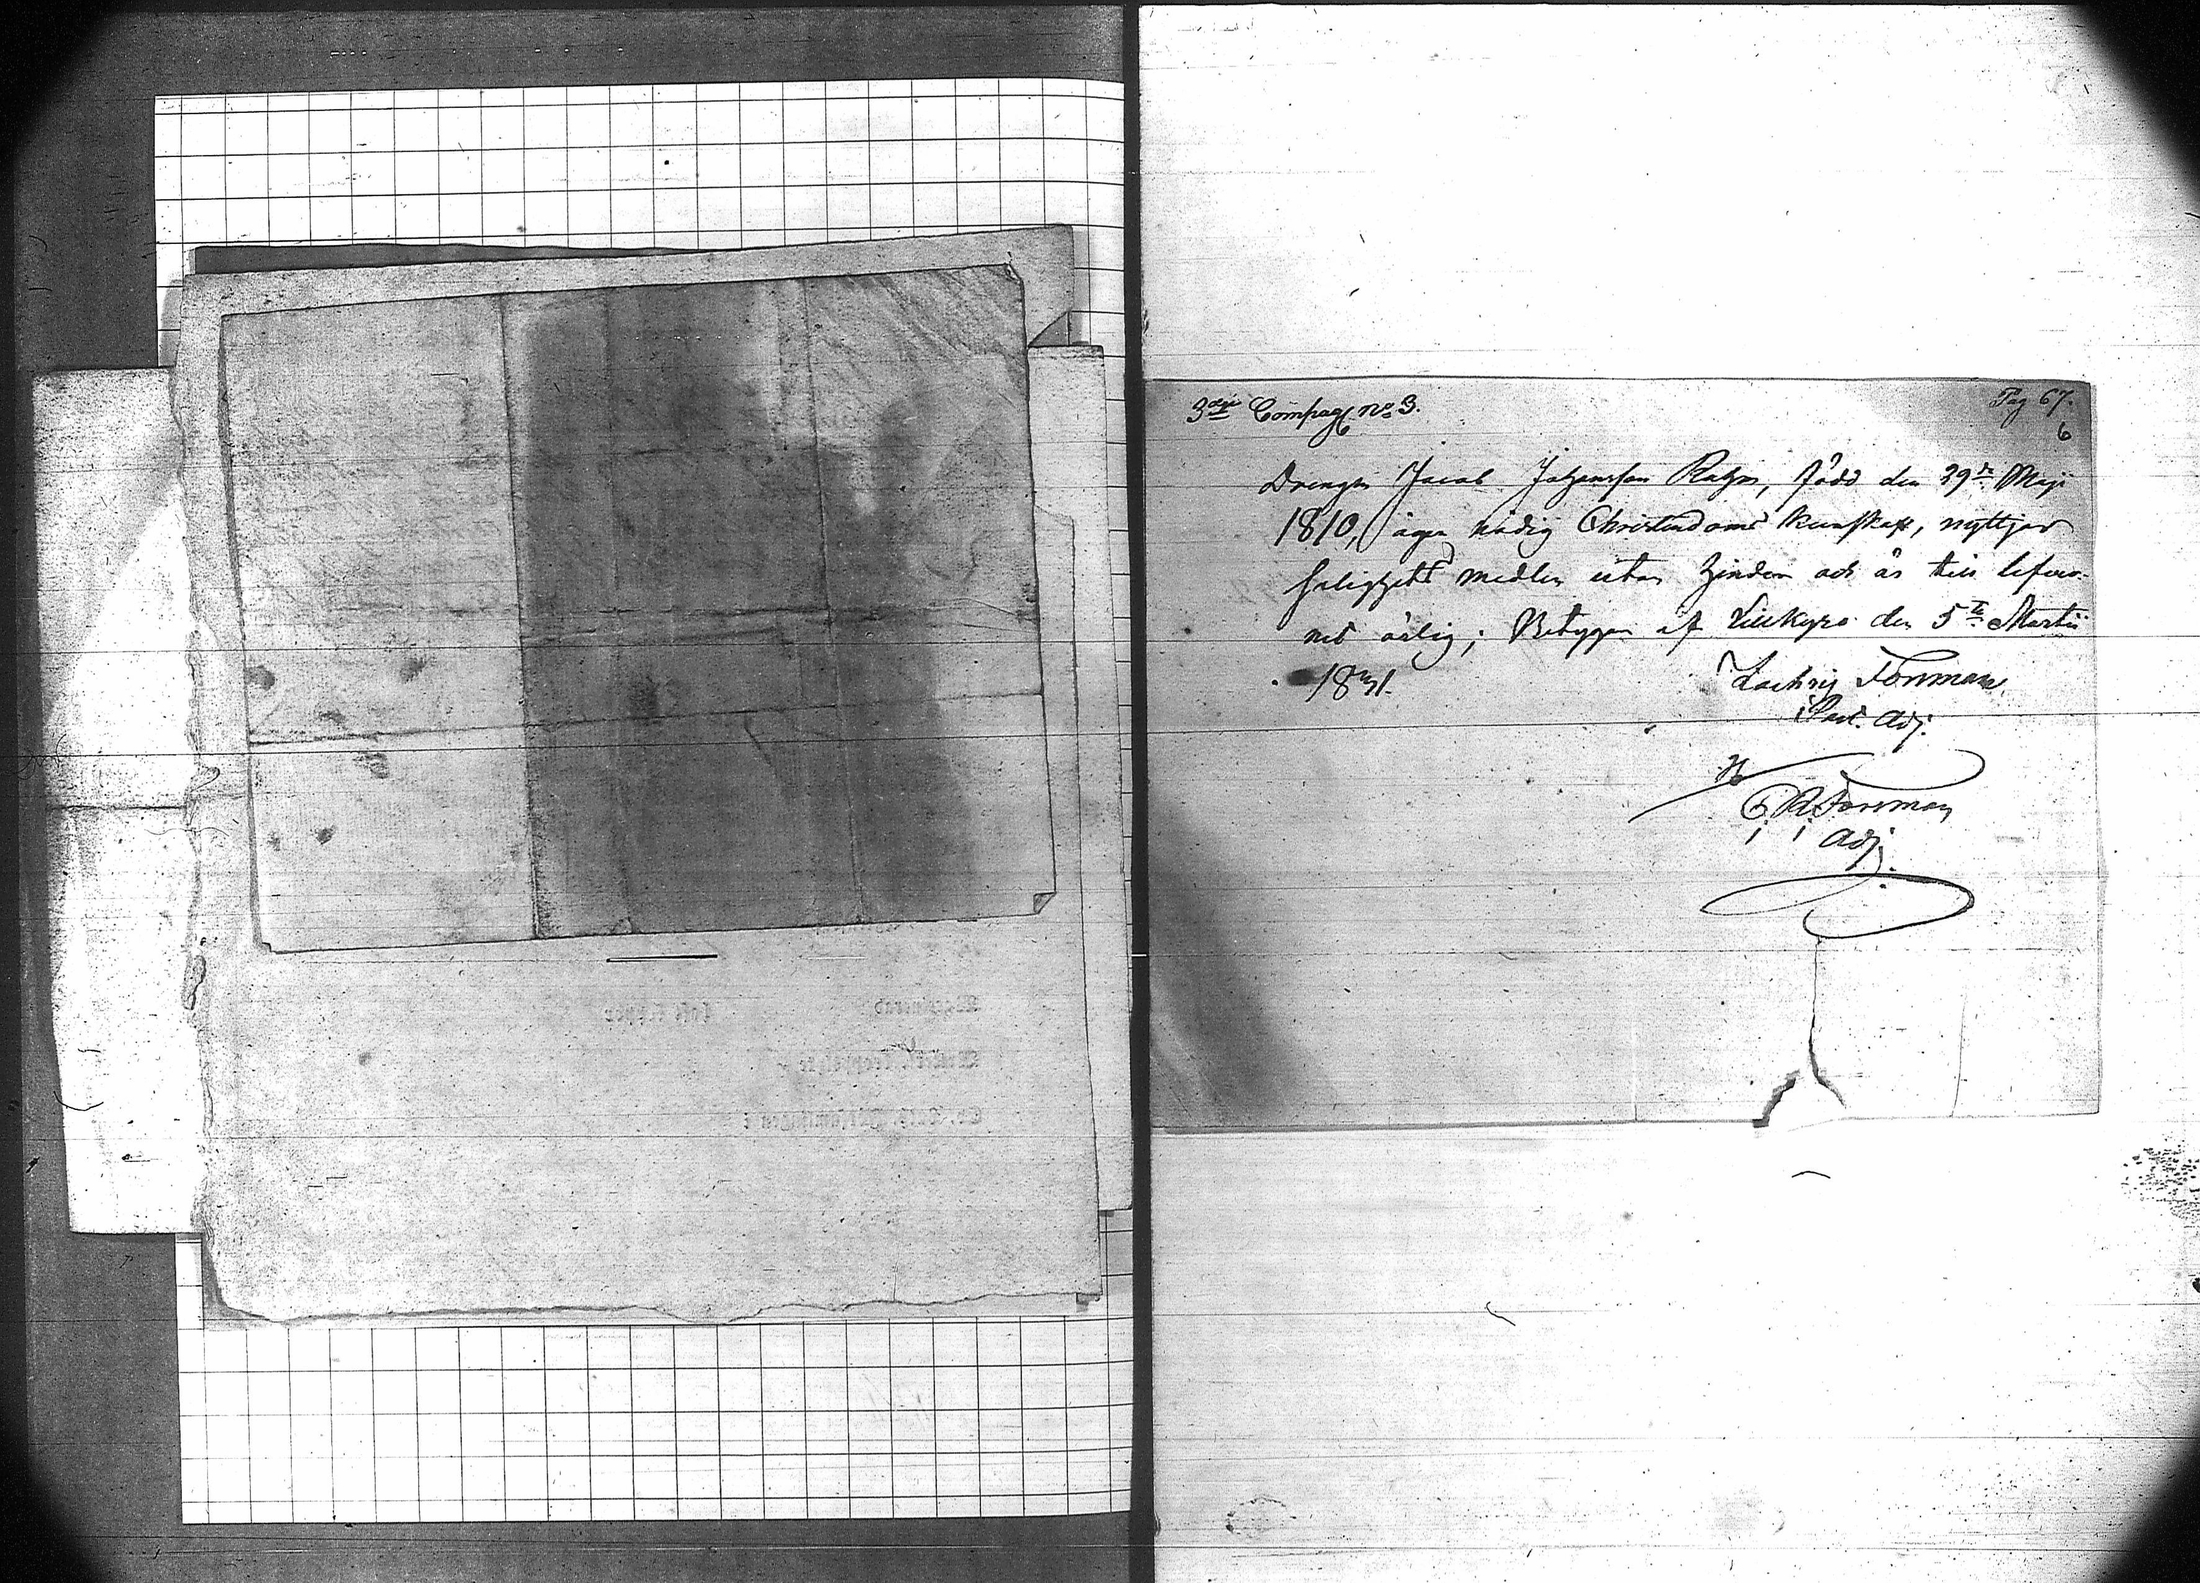 3dje Compag no 3.
Pag 67.
6
Drengen Jacob Johansson Rahm, född den 29de Maji
1810, äger nödig Christendoms kunskap, nyttjar
salighets medlen utan hinder och är till lefver-
net ärlig; Betygar af Lillkyro den 5te Martii
1831.
Zachris Forsman
Past. Adj.
C. R. Forsman
Adj.